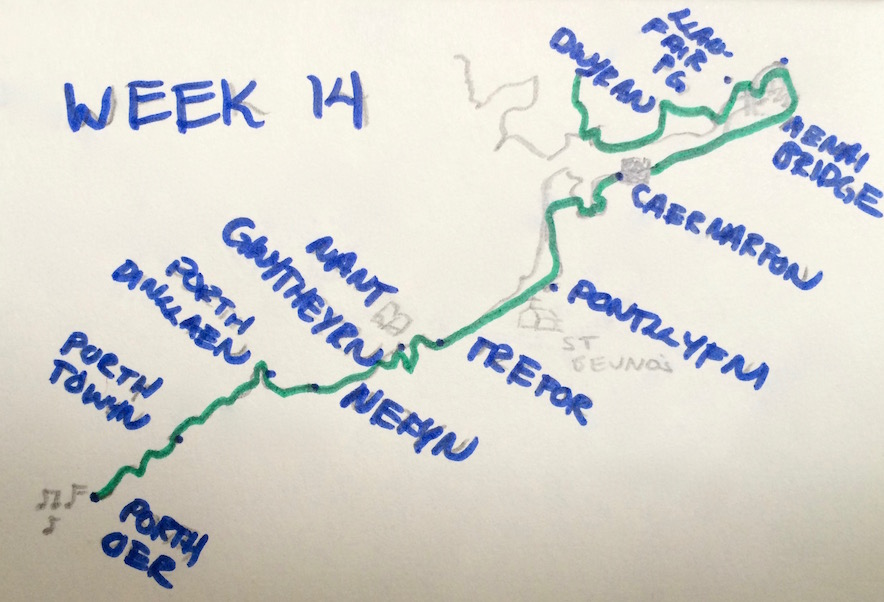 WEEK 14
DWYRAN
LLAN-
FAIR
PG
MENAI
BRIDGE
CAERNARFON
PONTLLYFNI
ST
BEUNO'S
TREFOR
NANT
GWYTHEYRN
NEFYN
PORTH
DINLLAEN
PORTH
TOWYN
PORTH
OER